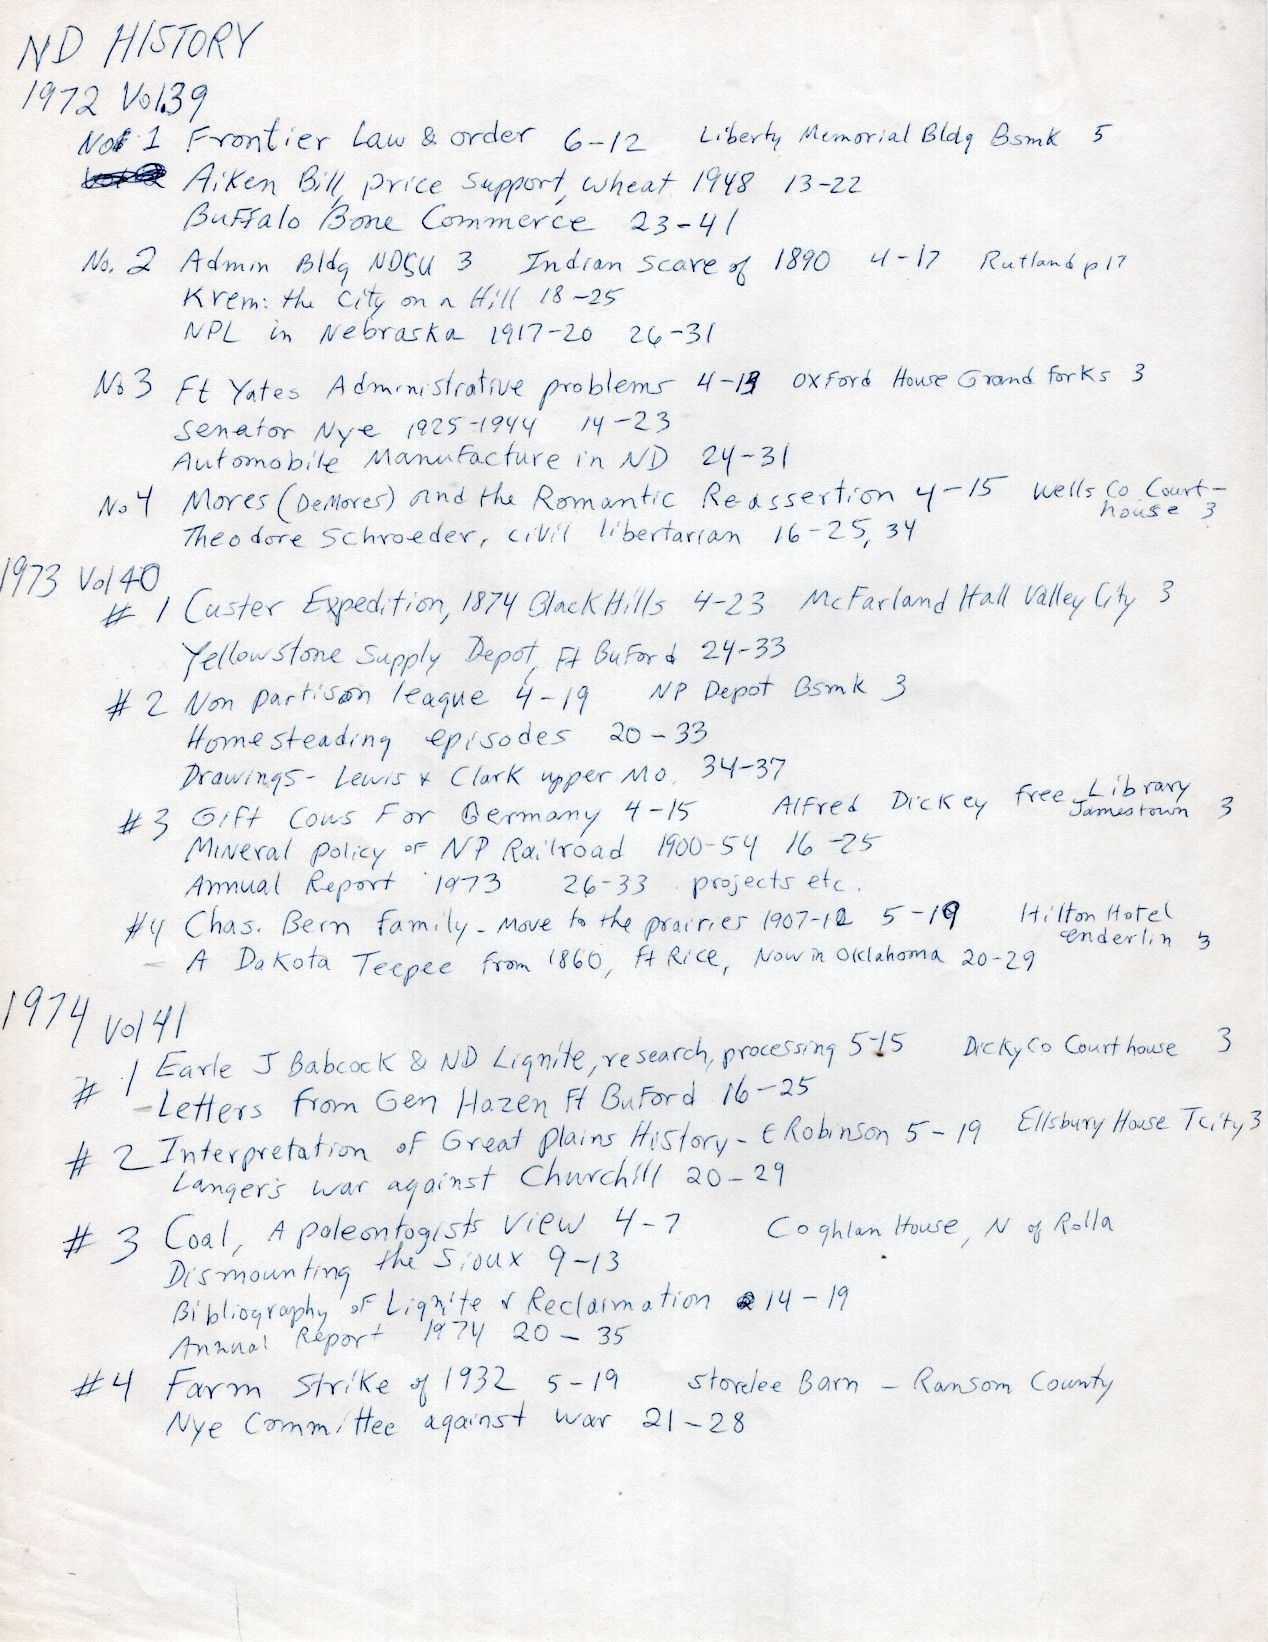 ND HISTORY
1972 Vol.39
No 1 Frontier Law & order 6-12 Liberty Memorial Bldg Bsmk 5
Aiken Bill, price support, wheat 1948 13-22
Buffalo Bone Commerce 23-41
No. 2 Admin Bldg NDSU 3 Indian Scare of 1890 4-17 Rutland p17
Krem: the City on a Hill 18-25
NPL in Nebraska 1917-20 26-31
No 3 Ft Yates Administrative problems 4-13 Oxford House Grand Forks 3
Senator Nye 1925-1944 14-23
Automobile Manufacture in ND 24-31
No 4 Mores (DeMores) and the Romantic Reassertion 4-15 Wells Co Court-
house 3
Theodore Schroeder, civil libertarian 16-25, 34
1973 Vol 40
# 1 Custer Expedition, 1874 Black Hills 4-23 McFarland Hall Valley City 3
Yellowstone Supply Depot, Ft Buford 24-33
# 2 Non partison league 4-19 NP Depot Bsmk 3
Homesteading episodes 20-33
Drawings- Lewis & Clark upper Mo. 34-37
# 3 Gift Cows For Germany 4-15 Alfred Dickey free Library
Jamestown 3
Mineral policy of NP Railroad 1900-54 16-25
Annual Report 1973 26-33 projects etc.
#4 Chas. Bern family - move to the prairies 1907-12 5-19 Hilton Hotel
enderlin 3
A Dakota Teepee from 1860, Ft Rice, Now in Oklahoma 20-29
1974 Vol 41
# 1 Earle J Babcock & ND Lignite, research, processing 5-15 Dicky Co Courthouse 3
- Letters from Gen Hazen Ft Buford 16-25
# 2 Interpretation of Great plains History - E Robinson 5-19 Ellsbury House T city 3
Langer's war against Churchill 20-29
# 3 Coal, A paleontogists view 4-7 Coghlan House, N of Rolla
Dismounting the Sioux 9-13
Bibliography of Lignite & Reclamation 14-19
Annual Report 1974 20-35
#4 Farm Strike of 1932 5-19 Storelee Barn - Ransom County
Nye Committee against war 21-28